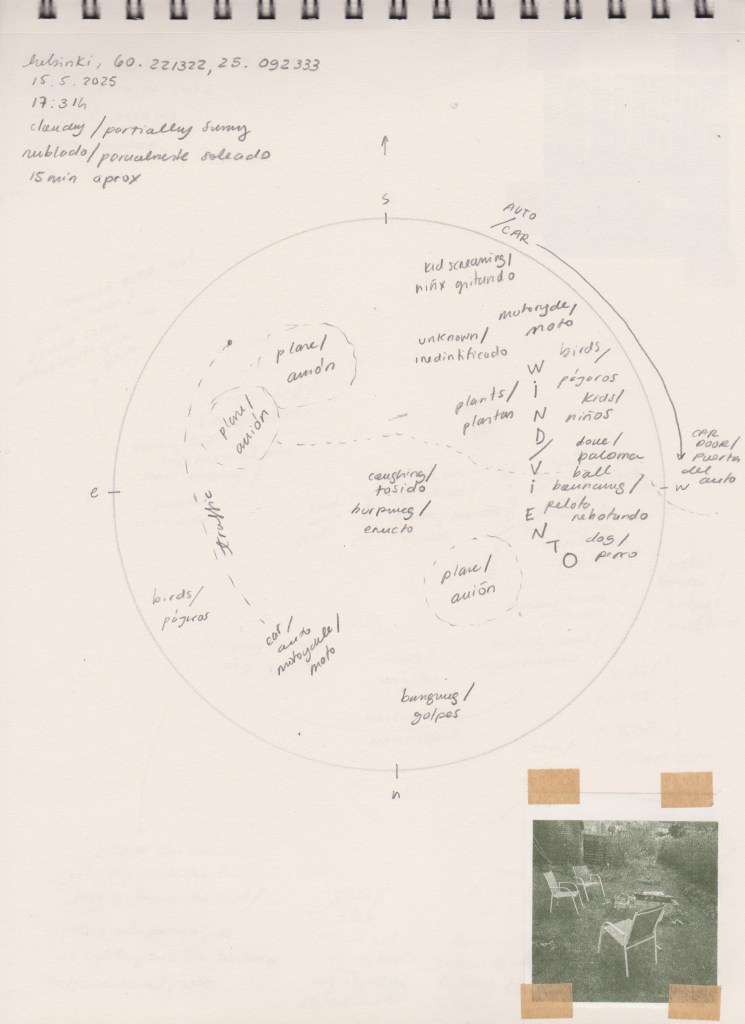 helsinki, 60.221322, 25.092333
15.5.2025
17:31h
cloudy/partially sunny
nublado/parcialmente soleado
15min aprox
s
AUTO
/CAR
kid screaming/
niñx gritando
motorycle/
moto
unknown/
inedintificado
plane/
avión
plane/
avión
plants/
plantas
WIND/VIENTO
birds/
pájaros
kids/
niños
dove/
paloma
ball
bouncing/
pelota
rebotando
dog/
perro
CAR
DOOR/
PUERTA
del
auto
w
e
coughing/
tosido
burping/
eructo
traffic
plane/
avión
birds/
pájaros
car/
auto
motorycle/
moto
banging/
golpes
n